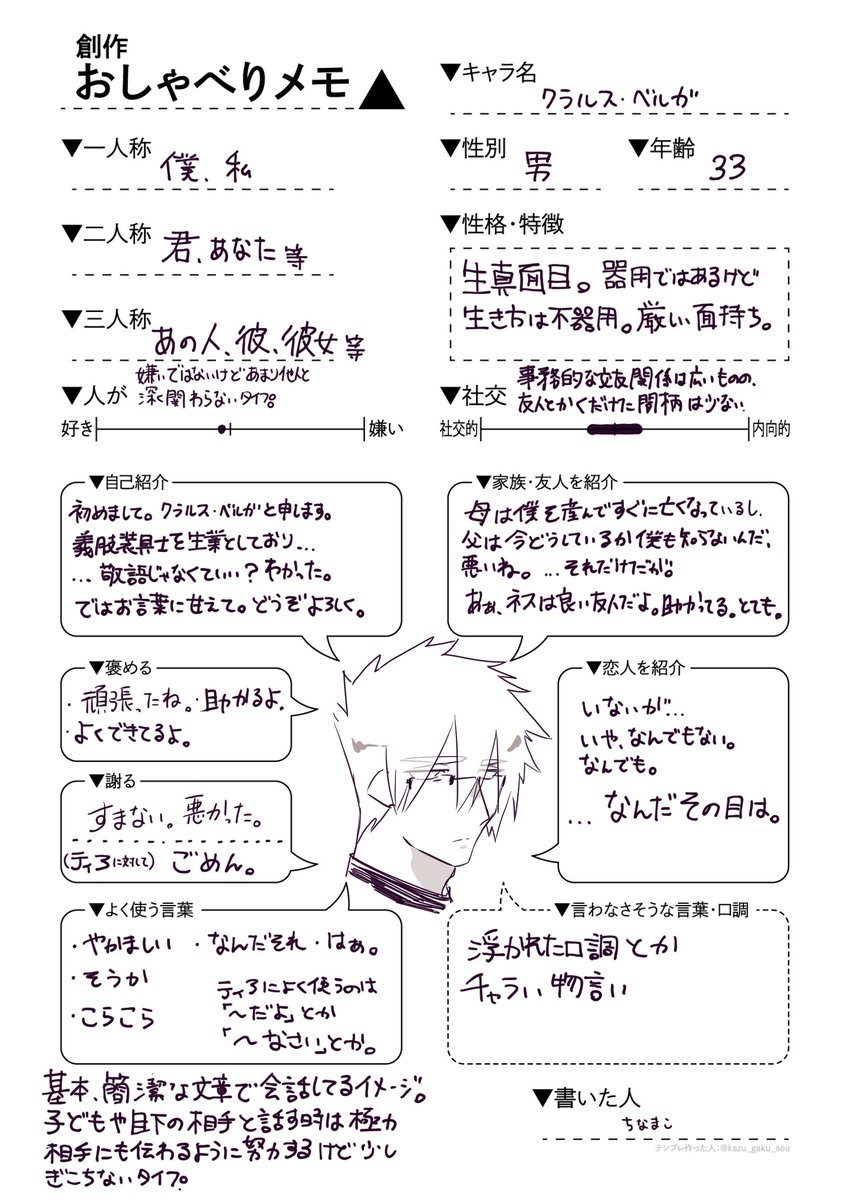 創作
おしゃべりメモ
▼キャラ名
クラルス・ベルガ
▼一人称
僕、私
▼性別
男
▼年齢
33
▼二人称
君、あなた 等
▼性格・特徴
生真面目。器用ではあるけど
生き方は不器用。厳い面持ち。
▼三人称
あの人、彼、彼女 等
▼人が
嫌いではないけどあまり他人と
深く関わらないタイプ。
好き
嫌い
▼社交
事務的な交友関係は広いものの、
友人とかくだけた間柄は少ない
社交的
内向的
▼自己紹介
初めまして。クラルス・ベルガと申します。
義肢装具士を生業としており…
…敬語じゃなくていい?わかった。
ではお言葉に甘えて。どうぞよろしく。
▼家族・友人を紹介
母は僕を産んですぐに亡くなっているし、
父は今どうしているか僕も知らないんだ、
悪いね。…それだけだが。
あぁ、ネスは良い友人だよ。助かってる。とても。
▼褒める
・頑張ったね。・助かるよ。
・よくできてるよ。
▼恋人を紹介
いないが…
いや、なんでもない。
なんでも。
…なんだその目は。
▼謝る
すまない。悪かった。
(ティアに対して) ごめん。
▼よく使う言葉
・やかましい ・なんだそれ ・はぁ。
・そうか
・こらこら
ティアによく使うのは
「〜だよ」とか
「〜なさい」とか。
▼言わなさそうな言葉・口調
浮かれた口調とか
チャラい物言い
基本、簡潔な文章で会話してるイメージ。
子どもや目下の相手と話す時は極力
相手にも伝わるように努力するけど少し
ぎこちないタイプ。
▼書いた人
ちなまこ
テンプレ作った人:@kazu_gaku_sou